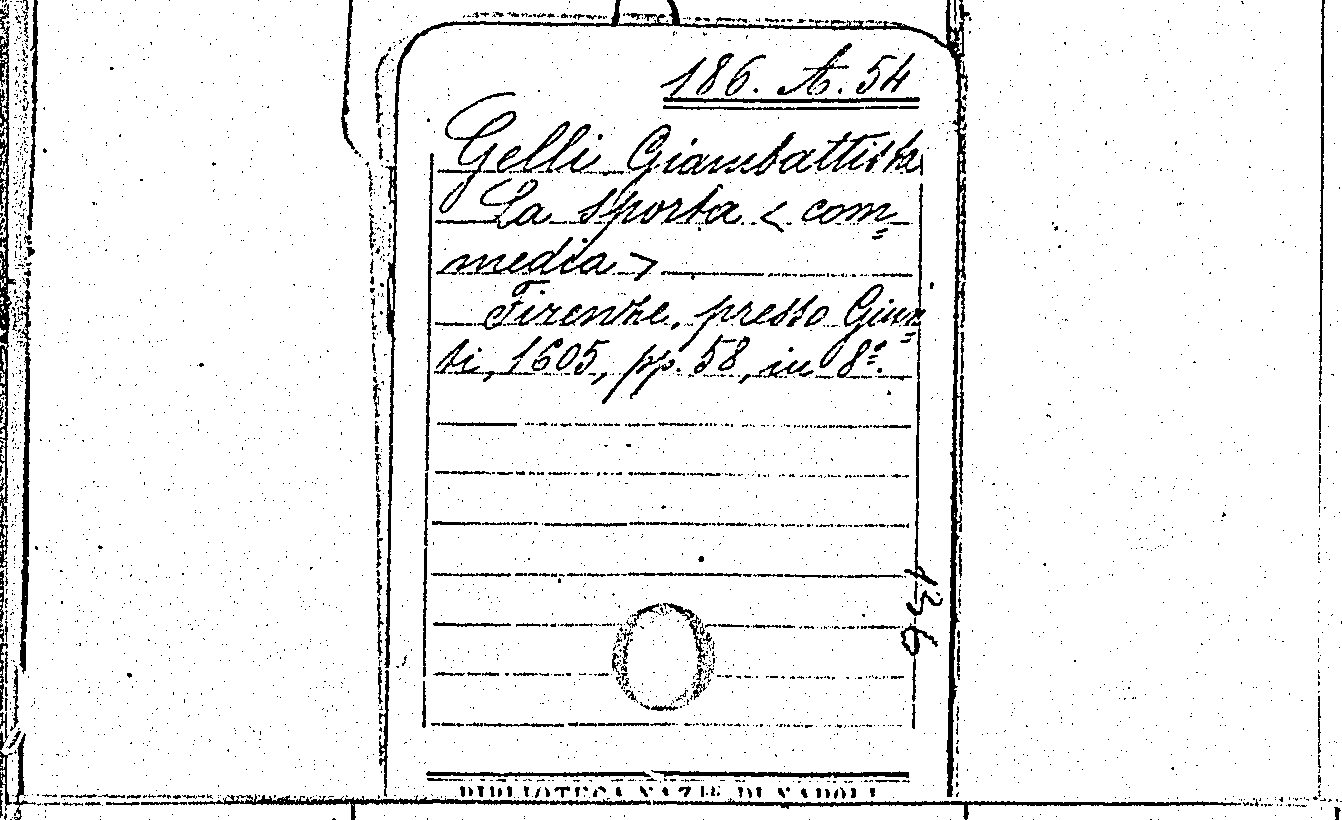 186. A. 54
Gelli Giambattista
La Sporta < com=
media >
Firenze, presso Giun=
ti, 1605, pp. 58, in 8º.
BIBLIOTECA NAZ. DI NAPOLI